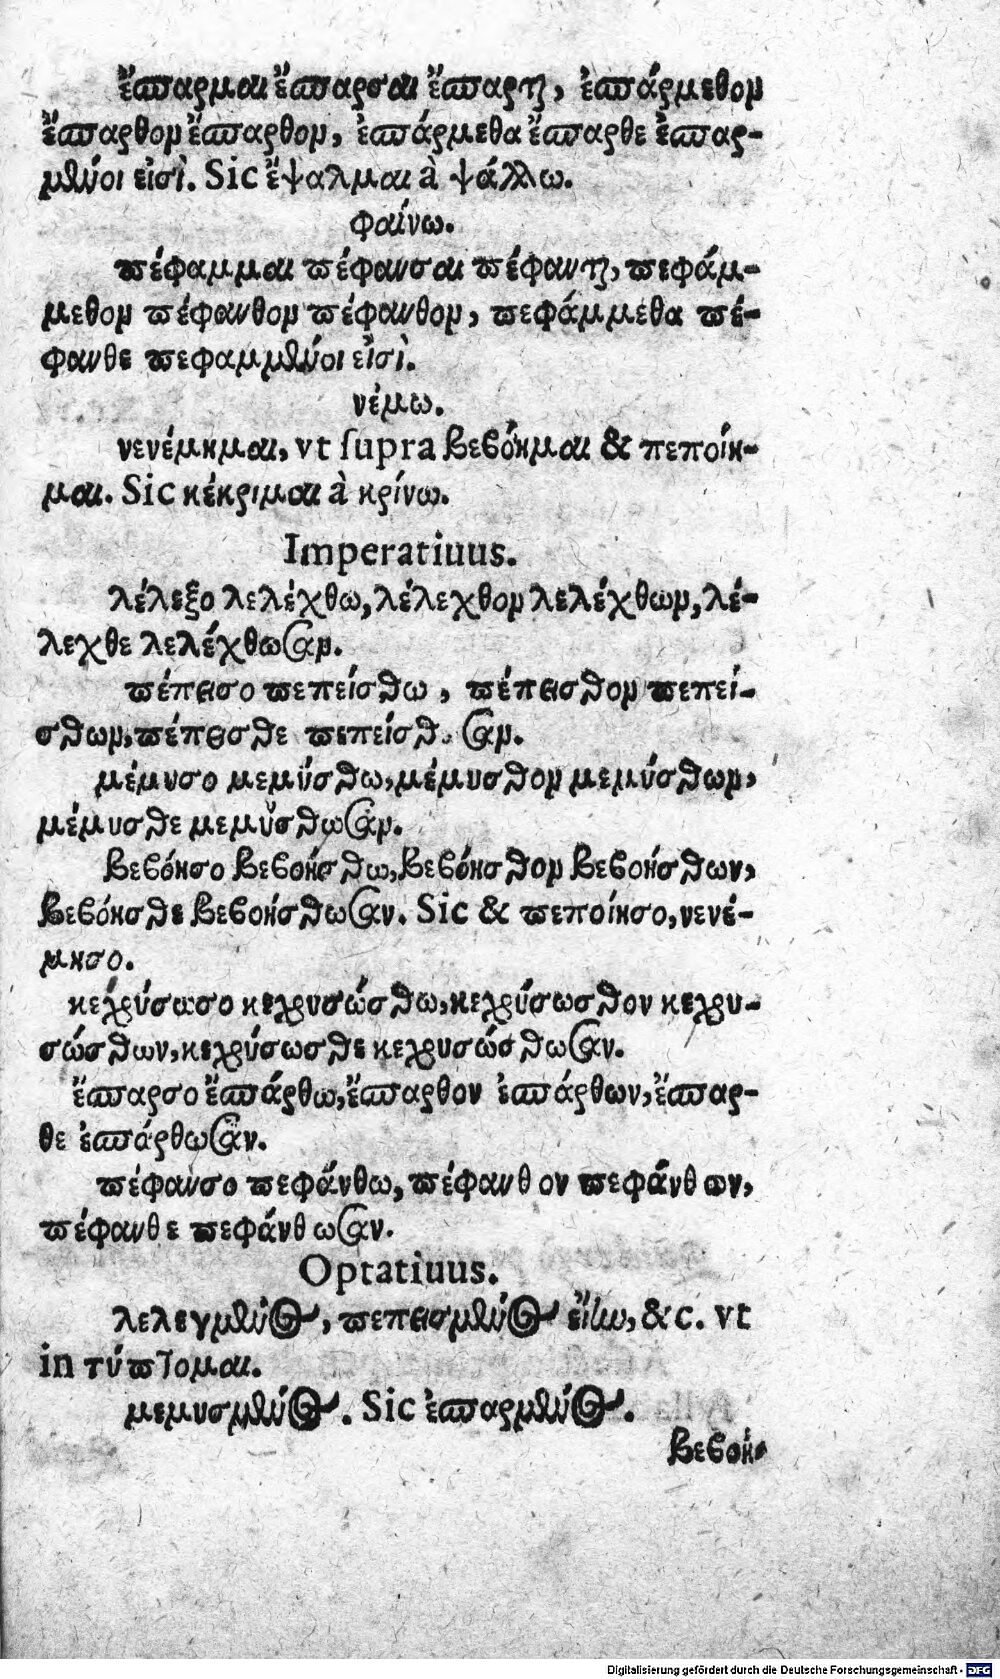 ἔσπαρμαι ἔσπαρσαι ἔσπαρται, ἐσπάρμεθον
ἔσπαρθον ἔσπαρθον, ἐσπάρμεθα ἔσπαρθε ἐσπαρ-
μένοι εἰσὶ. Sic ἔψαλμαι à ψάλλω.
φαίνω.
πέφαμμαι πέφανσαι πέφανται, πεφάμ-
μεθον πέφανθον πέφανθον, πεφάμμεθα πέ-
φανθε πεφαμμένοι εἰσὶ.
νέμω.
νενέμημαι, vt ſupra βεβόημαι & πεποίη-
μαι. Sic κέκριμαι à κρίνω.
Imperatiuus.
λέλεξο λελέχθω, λέλεχθον λελέχθων, λέ-
λεχθε λελέχθωσαν.
πέπεισο πεπείσθω, πέπεισθον πεπεί-
σθων, πέπεισθε πεπείσθωσαν.
μέμυσο μεμύσθω, μέμυσθον μεμύσθων,
μέμυσθε μεμύσθωσαν.
βεβόησο βεβοήσθω, βεβόησθον βεβοήσθων,
βεβόησθε βεβοήσθωσαν. Sic & πεποίησο, νενέ-
μησο.
κεχρύσωσο κεχρυσώσθω, κεχρύσωσθον κεχρυ-
σώσθων, κεχρύσωσθε κεχρυσώσθωσαν.
ἔσπαρσο ἐσπάρθω, ἔσπαρθον ἐσπάρθων, ἔσπαρ-
θε ἐσπάρθωσαν.
πέφανσο πεφάνθω, πέφανθον πεφάνθων,
πέφανθε πεφάνθωσαν.
Optatiuus.
λελεγμένος, πεπεισμένος εἴην, &c. vt
in τύπτομαι.
μεμυσμένος. Sic ἐσπαρμένος.
βεβοη-
Digitalisierung gefördert durch die Deutsche Forschungsgemeinschaft - DFG